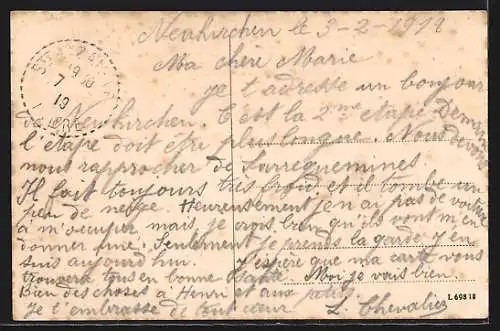 Neukirchen le 3-2-1919
Ma chère Marie
je t'adresse un bonjour
de Neukirchen. C'est la 2me étape Demain
l'étape doit être plus longue. Nous devons
nous rapprocher de Sarreguemines
Il fait toujours très froid et il tombe un
peu de neige Heureusement j'en ai pas de voiture
à m'occuper mais je crois bien qu'ils vont m'en
donner une. Seulement je prends la garde j'en
suis aujourd'hui. J'espère que ma carte vous
trouvera tous en bonne santé Moi je vais bien.
Bien des choses à Henri et aux
je t'embrasse de tout cœur. L. Chevalier
7
L 6981 B